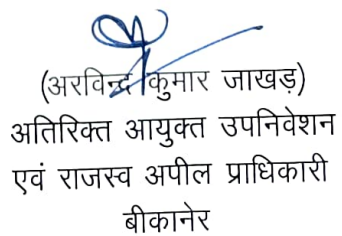 (अरविन्द कुमार जाखड़)
अतिरिक्त आयुक्त उपनिवेशन
एवं राजस्व अपील प्राधिकारी
बीकानेर